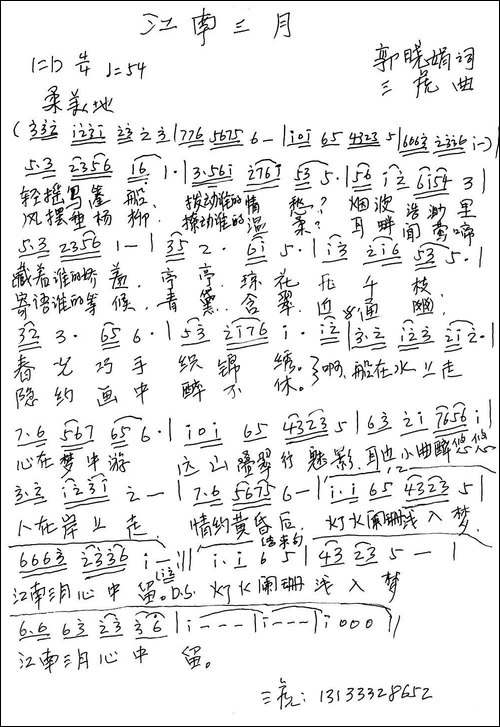 江南三月
1=D 4/4 ♩=54
郭晓娟词
柔美地
三虎 曲
(3 3 2 1 2 3 1 2 3 2 3 | 7 7 6 5 6 7 5 6 - | 1 0 1 6 5 4 3 2 3 5 | 6 6 6 3 2 3 2 6 1 -)
5·3 2 3 5 6 1 6 1· | 3·5 6 1 2 7 6 1 5 3 5· | 5 6 1 2 6 1 5 4 3 |
轻摇 船, 拨动谁的情 愁? 烟波 浩渺里
风摆垂杨 柳. 撩动谁的温 柔? 耳畔 闻莺啼
5·3 2 3 5 6 1 - | 3 5 2· 6 1 5· | 1 3 2 1 6 5 3 5· |
藏着谁的娇 羞, 亭 亭. 琼花 几 千 枝
寄语谁的等 候. 青 黛. 含翠. 幽.
3 2 3· 6 5 6· | 5 3 2 1 7 6 1· 1 2 | 3·2 1 2 3 2 1 2· |
春光巧手 织锦 绣。 啊, 船在水上走
隐约画中 醉不 休。
7·6 5 6 7 6 5 6· | 1 0 1 6 5 4 3 2 3 5 | 6 3 2 1 7 6 5 6 1 |
心在梦中游 远山 行魅影, 耳边小曲醉悠悠
3·3 1 2 3 1 2 - | 7·6 5 6 7 5 6 - | 1·1 6 5 4 3 2 3 5 |
人在岸上走. 情约黄昏后. 灯火阑珊浅入梦.
结束句
6 6 6 3 2 3 3 6 1 - | 1·1 6 5 | 4 3 2 3 5 - |
江南三月心中 留。D.S. 灯火阑珊 浅入 梦
6·6 6 3 2 3 3 6 | 1 - - - | 1 - - - | 1 0 0 0 ||
江南三月心中 留。
三虎: 13133328652